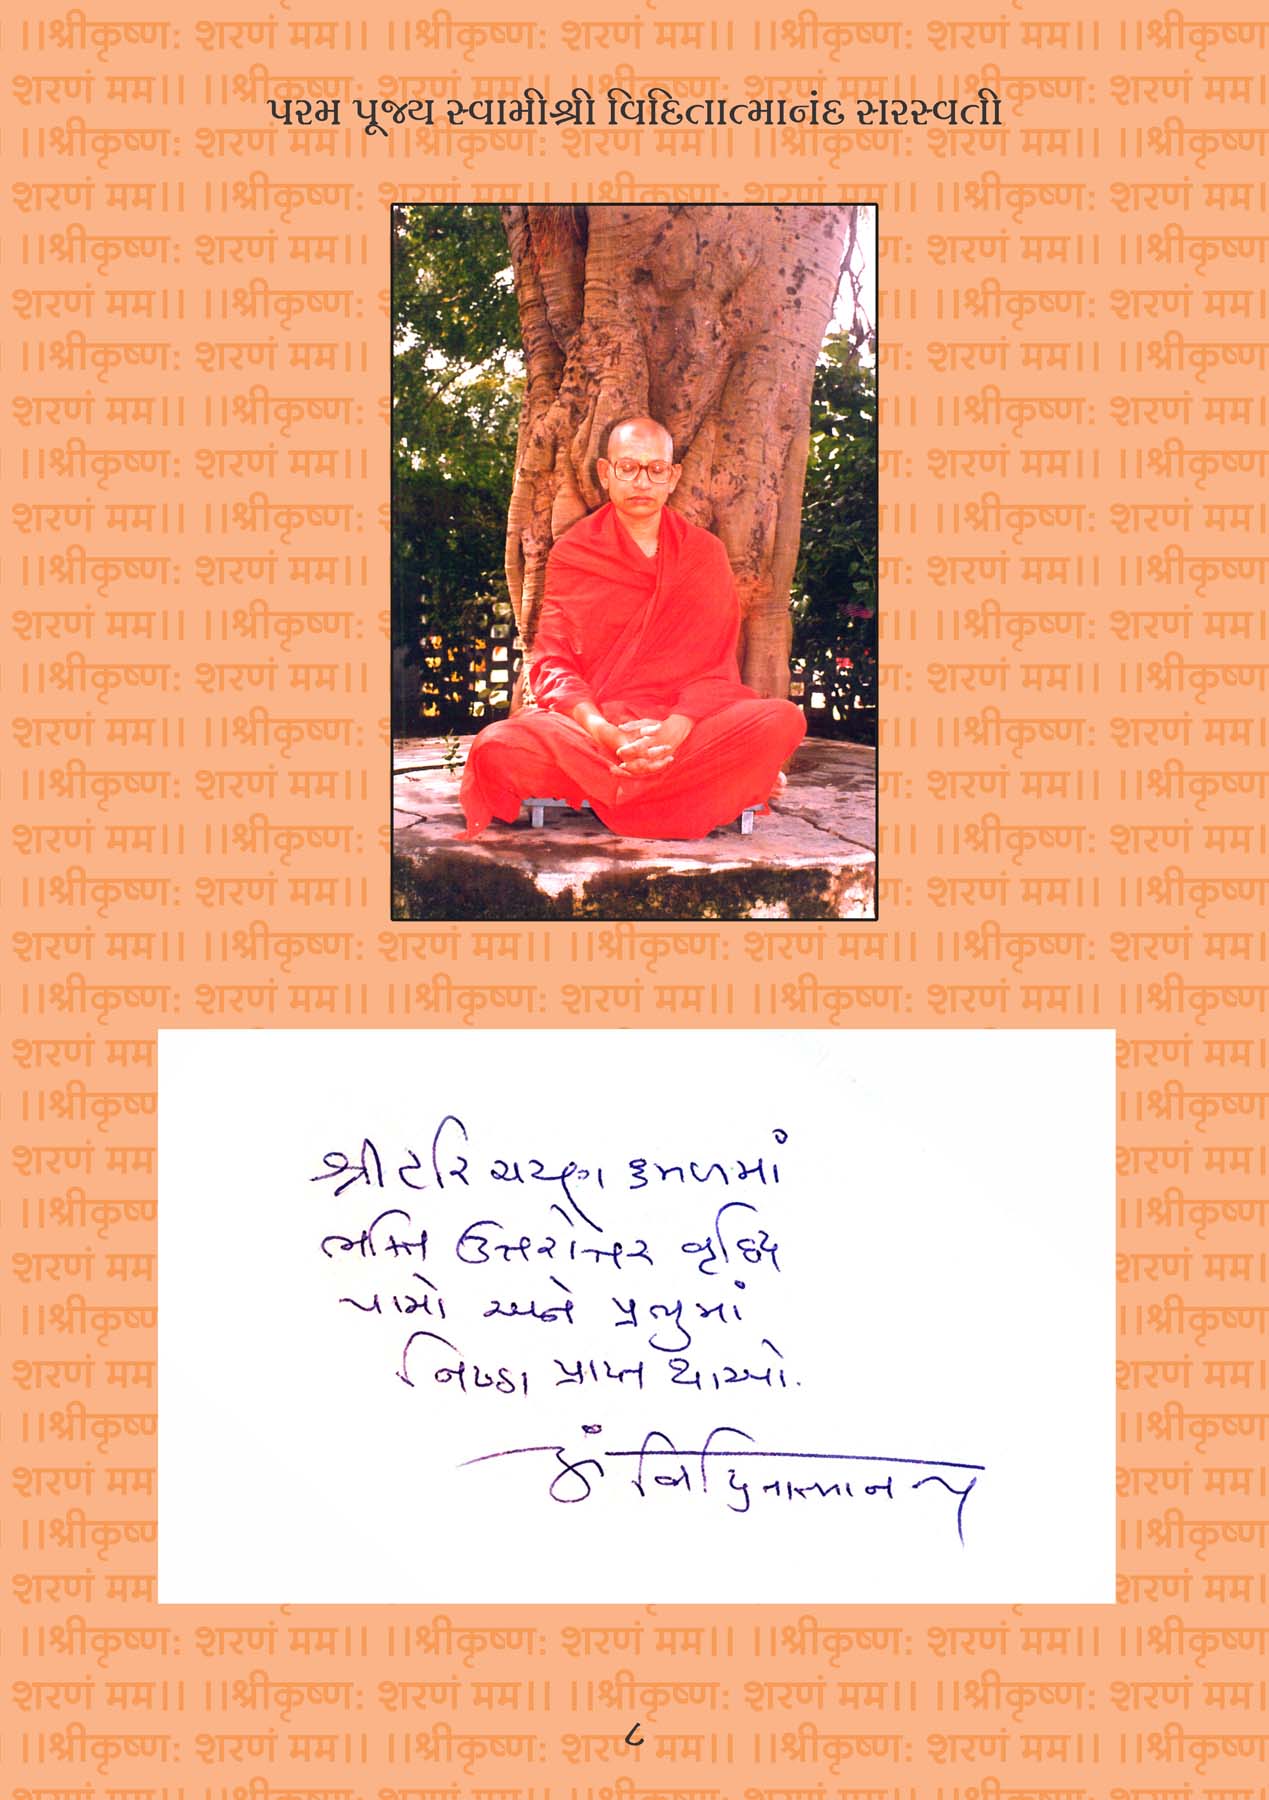 પરમ પૂજ્ય સ્વામીશ્રી વિદિતાત્માનંદ સરસ્વતી
શ્રી હરિ ચરણ કમળમાં
ભક્તિ ઉત્તરોત્તર વૃદ્ધિ
પામો અને પ્રભુમાં
નિષ્ઠા પ્રાપ્ત થાઓ.
ૐ વિદિતાત્માનન્દ
૮
।।श्रीकृष्ण: शरणं मम।।